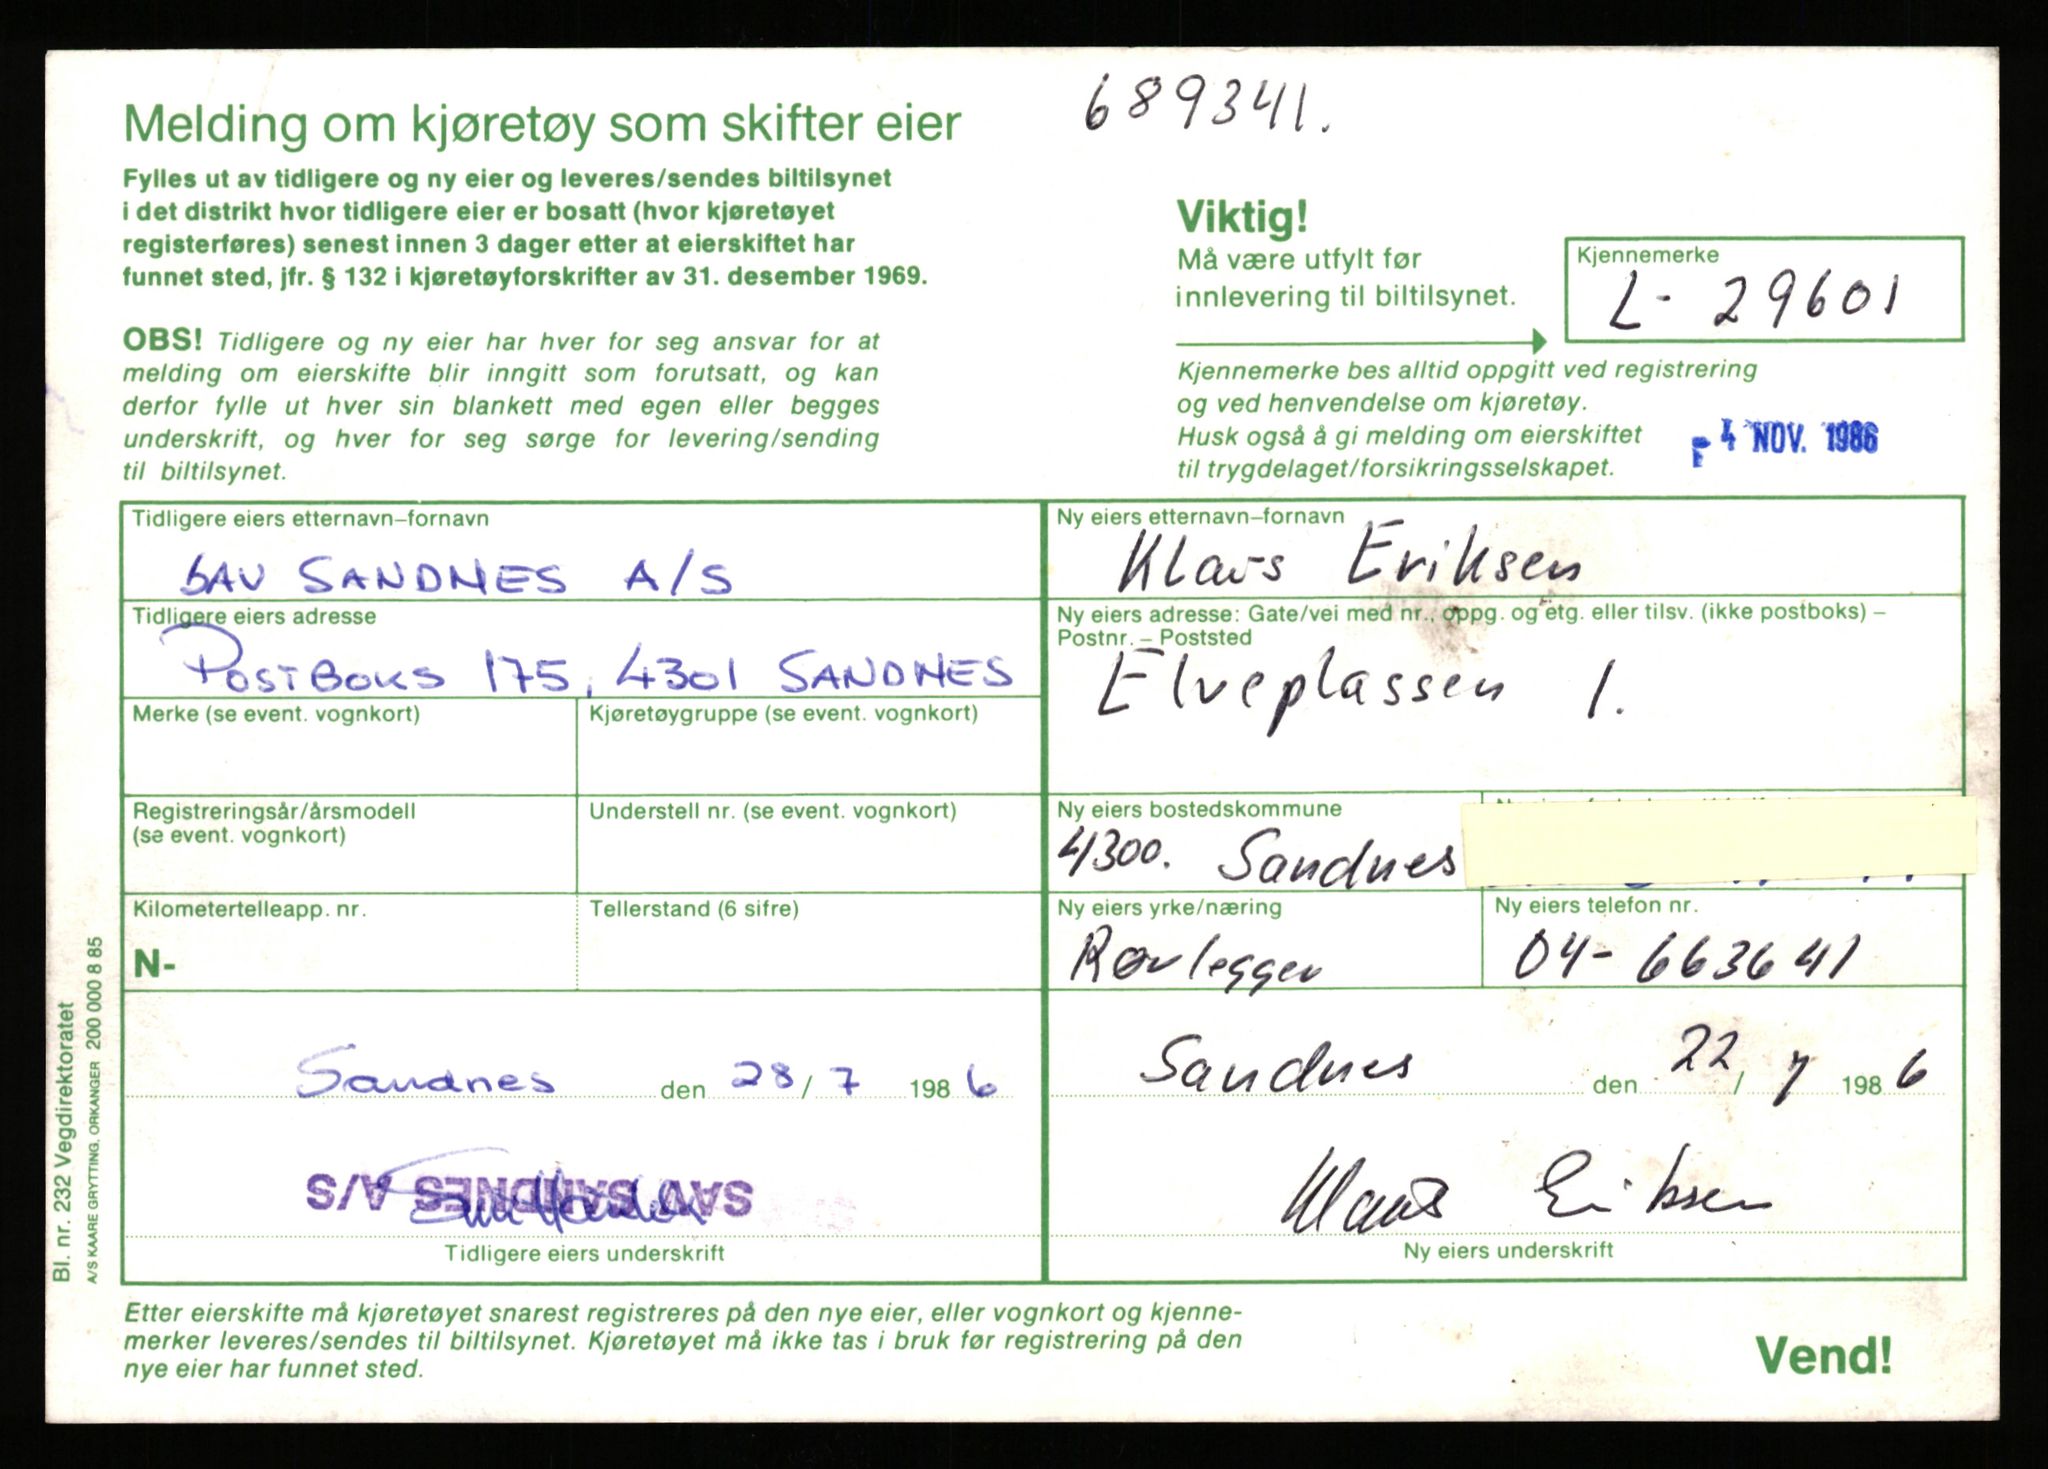 689341.
Melding om kjøretøy som skifter eier
Fylles ut av tidligere og ny eier og leveres/sendes biltilsynet
i det distrikt hvor tidligere eier er bosatt (hvor kjøretøyet
registerføres) senest innen 3 dager etter at eierskiftet har
funnet sted, jfr. § 132 i kjøretøyforskrifter av 31. desember 1969.
OBS! Tidligere og ny eier har hver for seg ansvar for at
melding om eierskifte blir inngitt som forutsatt, og kan
derfor fylle ut hver sin blankett med egen eller begges
underskrift, og hver for seg sørge for levering/sending
til biltilsynet.
Viktig!
Må være utfylt før
innlevering til biltilsynet.
Kjennemerke
L - 29601
Kjennemerke bes alltid oppgitt ved registrering
og ved henvendelse om kjøretøy.
Husk også å gi melding om eierskiftet
til trygdelaget/forsikringsselskapet.
4 NOV. 1986
Tidligere eiers etternavn–fornavn
SAV SANDNES A/S
Tidligere eiers adresse
POSTBOKS 175, 4301 SANDNES
Merke (se event. vognkort)
Kjøretøygruppe (se event. vognkort)
Registreringsår/årsmodell
(se event. vognkort)
Understell nr. (se event. vognkort)
Kilometertelleapp. nr.
N-
Tellerstand (6 sifre)
Sandnes den 28/7 1986
SAV SANDNES A/S
Tidligere eiers underskrift
Ny eiers etternavn–fornavn
Klaus Eriksen
Ny eiers adresse: Gate/vei med nr., oppg. og etg. eller tilsv. (ikke postboks) –
Postnr. – Poststed
Elveplassen 1.
Ny eiers bostedskommune
4300. Sandnes
Ny eiers yrke/næring
Rørlegger
Ny eiers telefon nr.
04-663641
Sandnes den 22/7 1986
Klaus Eriksen
Ny eiers underskrift
Etter eierskifte må kjøretøyet snarest registreres på den nye eier, eller vognkort og kjenne-
merker leveres/sendes til biltilsynet. Kjøretøyet må ikke tas i bruk før registrering på den
nye eier har funnet sted.
Vend!
Bl. nr. 232 Vegdirektoratet
A/S KAARE GRYTTING, ORKANGER 200 000 8 85